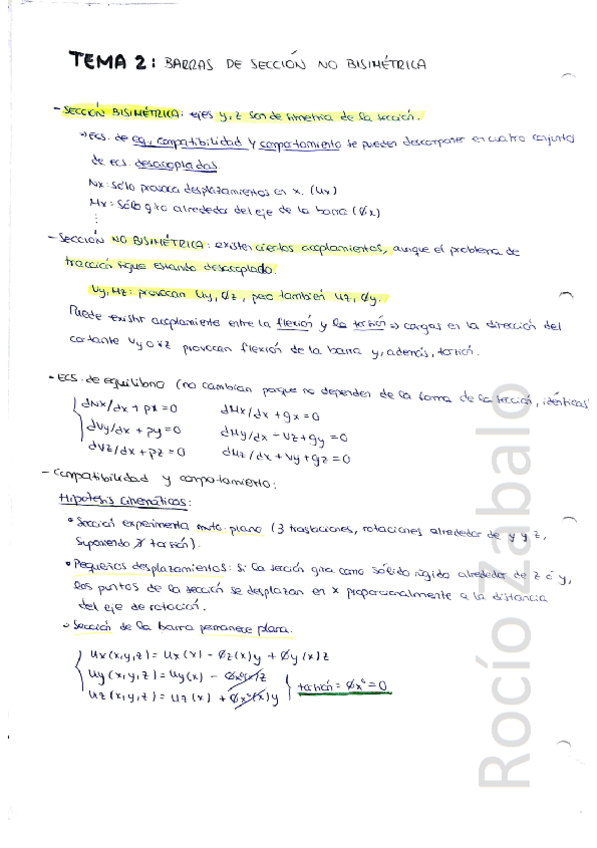 TEMA 2: BARRAS DE SECCIÓN NO BISIMÉTRICA
- SECCIÓN BISIMÉTRICA: ejes y, z son de simetría de la sección.
→ Ecs. de eq, compatibilidad y comportamiento se pueden descomponer en cuatro conjuntos
de ecs. desacopladas.
Nx: sólo provoca desplazamientos en x. (ux)
Mx: sólo giro alrededor del eje de la barra (Øx)
⋮
- SECCIÓN NO BISIMÉTRICA: existen ciertos acoplamientos, aunque el problema de
tracción sigue estando desacoplado.
Vy, Mz: provocan uy, Øz, pero también uz, Øy.
Puede existir acoplamiento entre la flexión y la torsión ⇒ cargas en la dirección del
cortante Vy o Vz provocan flexión de la barra y, además, torsión.
- ECS. de equilibrio (no cambian porque no dependen de la forma de la sección, idénticas)
dNx/dx + px = 0 dMx/dx + qx = 0
dVy/dx + py = 0 dMy/dx - Vz + qy = 0
dVz/dx + pz = 0 dMz/dx + Vy + qz = 0
- Compatibilidad y comportamiento:
Hipótesis cinemáticas:
• Sección experimenta mvto. plano (3 traslaciones, rotaciones alrededor de y y z,
suponiendo ∄ torsión).
• Pequeños desplazamientos: si la sección gira como sólido rígido alrededor de z ó y,
los puntos de la sección se desplazan en x proporcionalmente a la distancia
del eje de rotación.
• Sección de la barra permanece plana.
ux(x,y,z) = ux(x) - Øz(x)y + Øy(x)z
uy(x,y,z) = uy(x) - Øx(x)z
uz(x,y,z) = uz(x) + Øx(x)y
torsión = Øx = 0
Rocío Zabalo